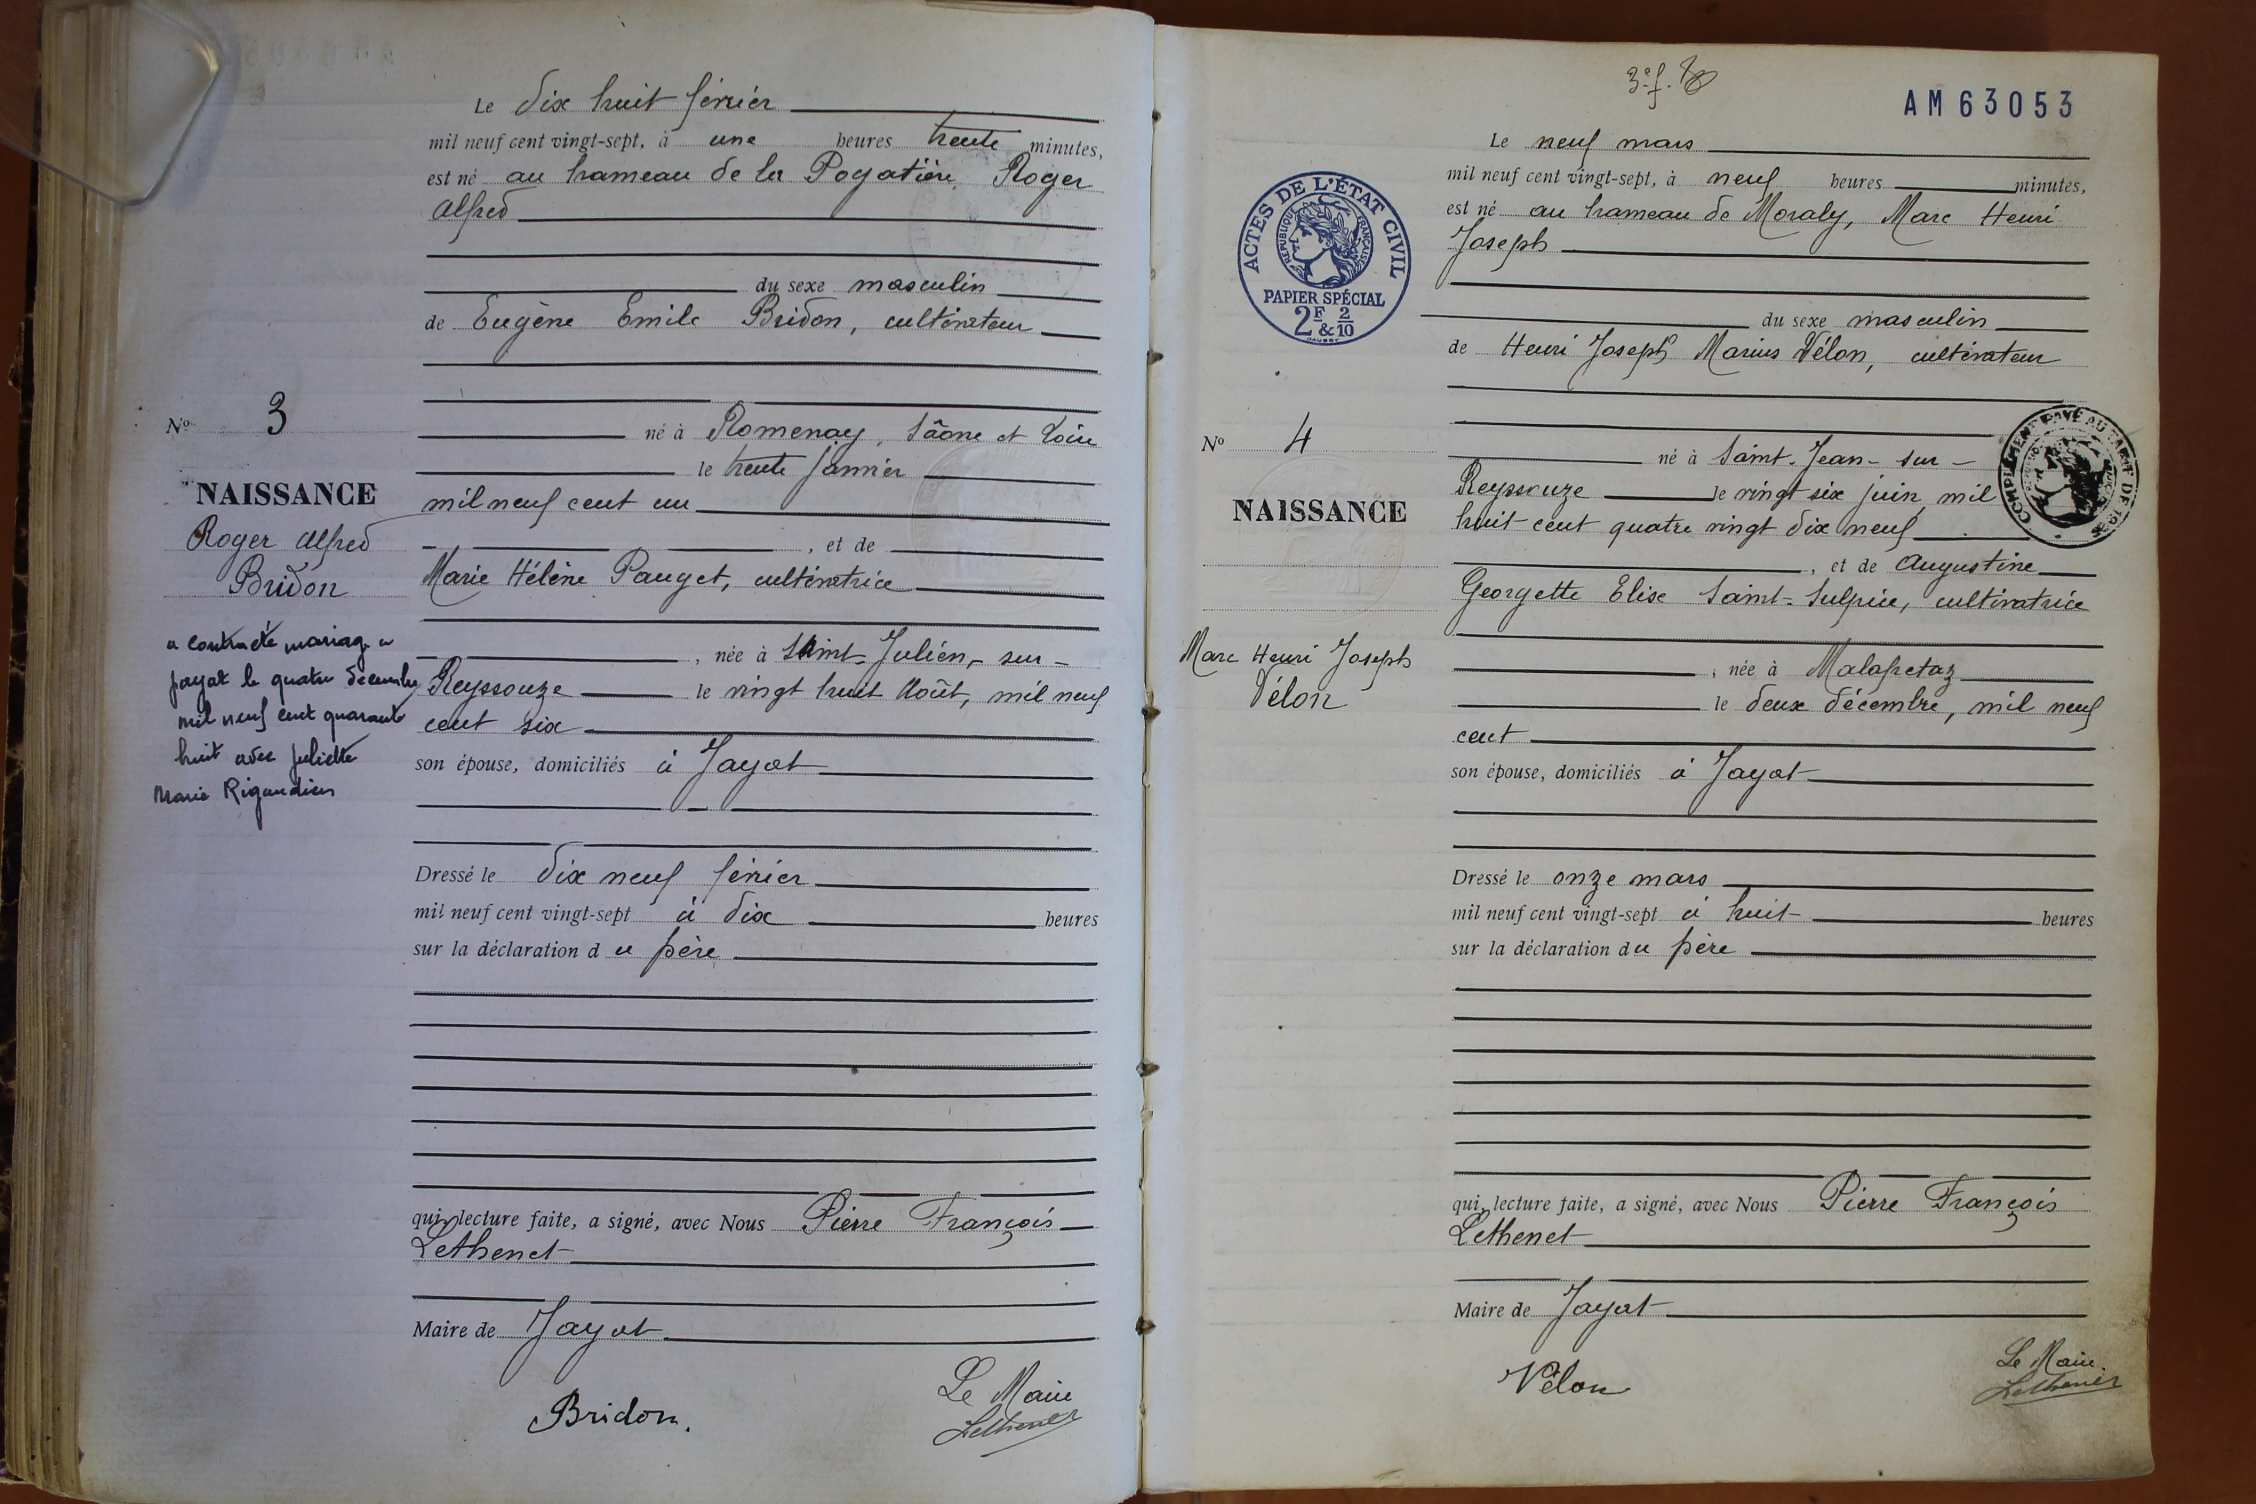 Le dix huit février
mil neuf cent vingt-sept, à une heures trente minutes,
est né au hameau de la Pogatière, Roger
Alfred
du sexe masculin
de Eugène Emile Bridon, cultivateur
né à Romenay, Saône et Loire
le trente janvier
mil neuf cent un
, et de
Marie Hélène Pauget, cultivatrice
, née à Saint-Julien-sur-
Reyssouze le vingt huit Août, mil neuf
cent six
son épouse, domiciliés à Jayat
Dressé le dix neuf février
mil neuf cent vingt-sept à dix heures
sur la déclaration du père
qui, lecture faite, a signé, avec Nous Pierre François
Lethenet
Maire de Jayat
Bridon.
Le Maire
Lethenet
No 3
NAISSANCE
Roger Alfred
Bridon
a contracté mariage a
jayat le quatre décembre
mil neuf cent quarante
huit avec juliette
Marie Rigaudier
3e f.
AM63053
Le neuf mars
mil neuf cent vingt-sept, à neuf heures minutes,
est né au hameau de Moraly, Marc Henri
Joseph
du sexe masculin
de Henri Joseph Marius Vélon, cultivateur
né à Saint-Jean-sur-
Reyssouze le vingt six juin, mil
huit cent quatre vingt dix neuf
, et de Augustine
Georgette Elise Saint-Sulpice, cultivatrice
, née à Malafretaz
le deux décembre, mil neuf
cent
son épouse, domiciliés à Jayat
Dressé le onze mars
mil neuf cent vingt-sept à huit heures
sur la déclaration du père
qui, lecture faite, a signé, avec Nous Pierre François
Lethenet
Maire de Jayat
Vélon
Le Maire.
Lethenet
ACTES DE L'ÉTAT CIVIL
RÉPUBLIQUE FRANÇAISE
PAPIER SPÉCIAL
2F & 2/10
No 4
NAISSANCE
Marc Henri Joseph
Vélon
COMPLÉMENT PAYÉ AU TARIF DE